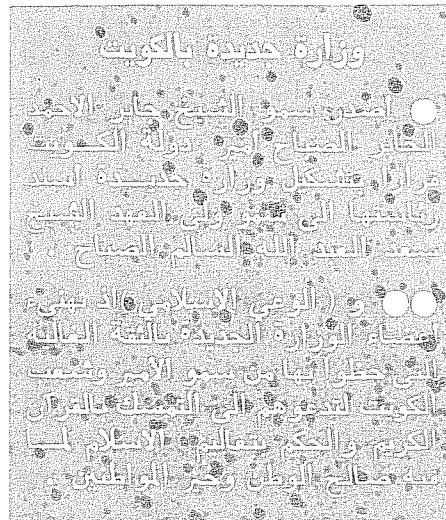 وزارة جديدة بالكويت
أصدر سمو الشيخ جابر الأحمد
الجابر الصباح أمير دولة الكويت
قرارا بتشكيل وزارة جديدة أسند
رئاستها الى سمو ولي العهد الشيخ
سعد العبد الله السالم الصباح .
و ( الوعي الاسلامي ) اذ تهنىء
أعضاء الوزارة الجديدة بالثقة الغالية
التي حظوا بها من سمو الأمير وشعب
الكويت لتدعوهم الى التمسك بالقرآن
الكريم والحكم بتعاليم الاسلام لما
فيه صالح الوطن وخير المواطنين .